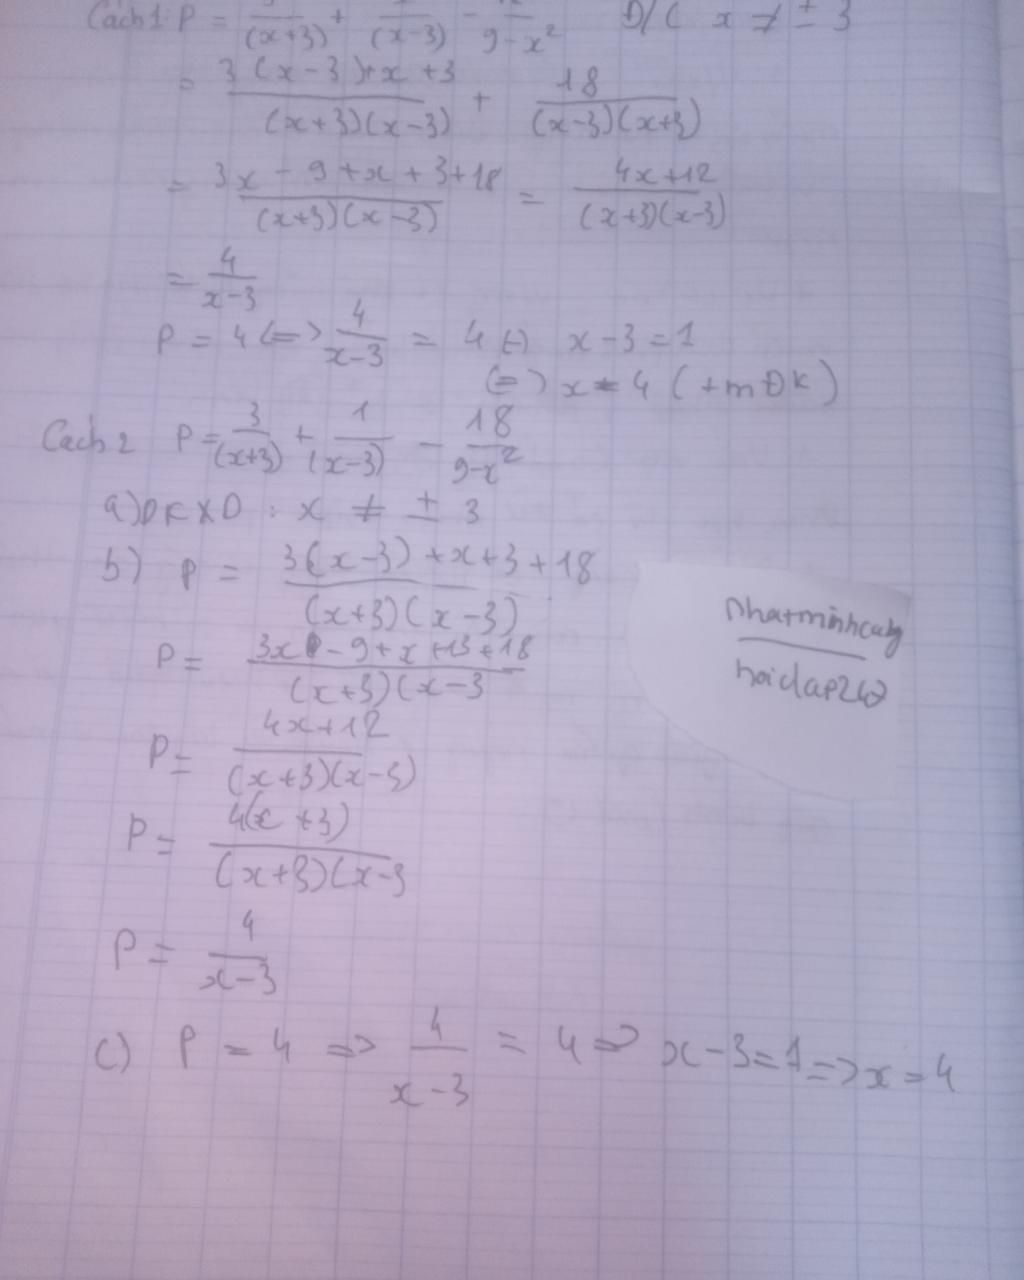 Cach 1: P = 3/(x+3) + 1/(x-3) - 18/9-x² Đ/C x ≠ ± 3
= 3(x-3)+x+3/(x+3)(x-3) + 18/(x-3)(x+3)
= 3x-9+x+3+18/(x+3)(x-3) = 4x+12/(x+3)(x-3)
= 4/x-3
P = 4 (=> 4/x-3 = 4 (-) x-3=1
(=) x = 4 (+m ĐK)
Cach 2 P = 3/(x+3) + 1/(x-3) - 18/9-x²
a) DKXD : x ≠ ± 3
b) P = 3(x-3)+x+3+18/(x+3)(x-3)
P = 3x-9+x+13+18/(x+3)(x-3
P = 4x+12/(x+3)(x-3)
P = 4(x+3)/(x+3)(x-3
P = 4/x-3
c) P = 4 => 4/x-3 = 4 => x-3=1 => x=4
hoidap247